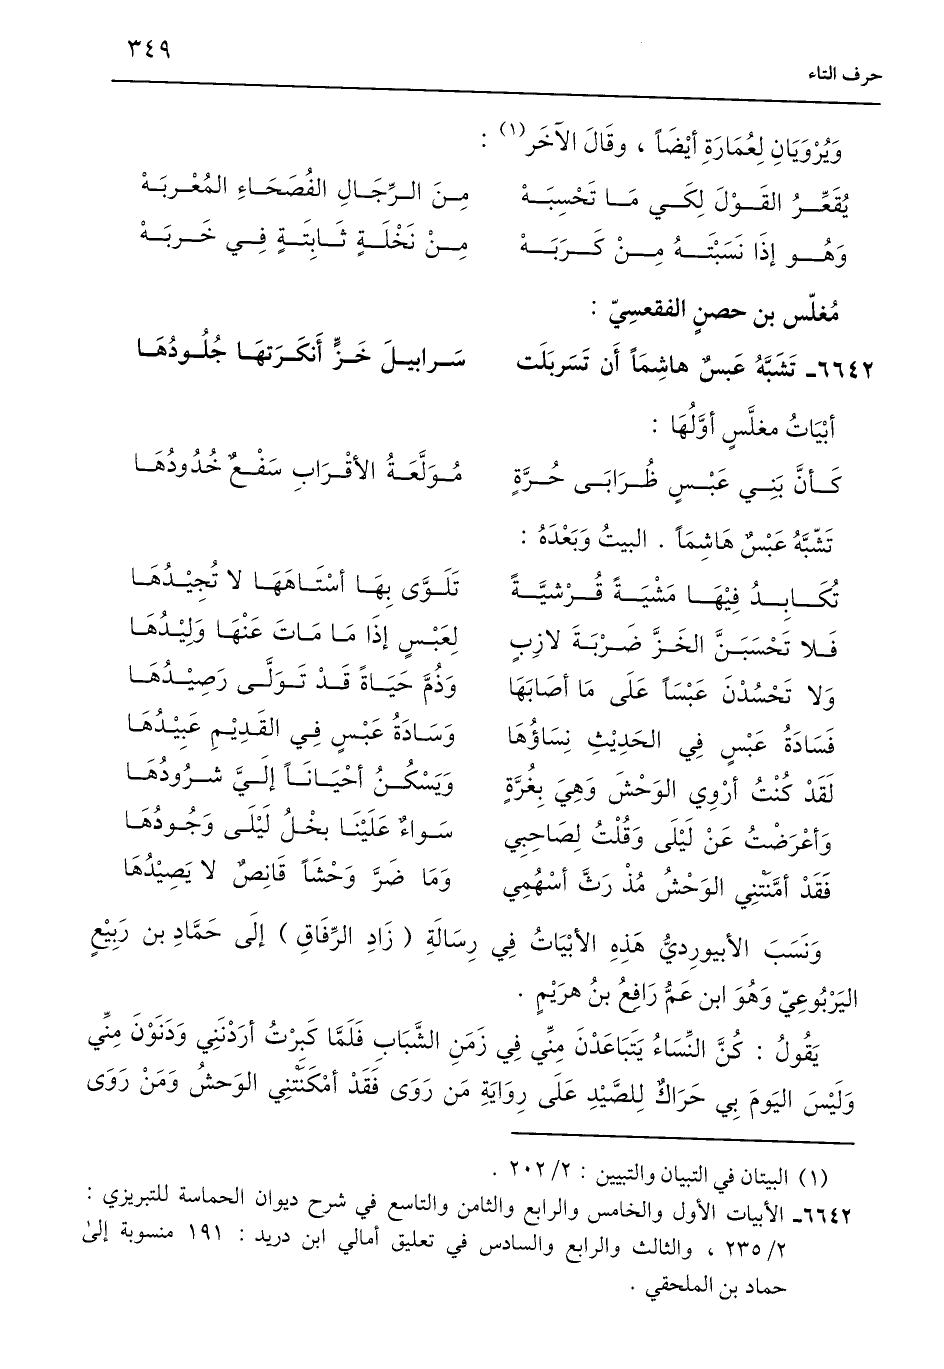 ٣٤٩
حرف التاء
وَيُرْوَيَانِ لِعُمَارَةِ أَيْضَاً ، وقَالَ الآخَر(١) :
يُقَعِّـــرُ القَــوْلَ لِكَــي مَــا تَحْسِبَــهْ مِـنَ الـرِّجَـالِ الفُصَحَـاءِ المُعْـرِبَـهْ
وَهُـــو إِذَا نَسَبْتَـــهُ مِـــنْ كَـــرَبَـــهْ مِـــنْ نَخْلَـــةٍ ثَـــابِتَـــةٍ فِـــي خَـــرِبَـــهْ
مُغلّس بن حصنٍ الفقعسِيّ :
٦٦٤٢ـ تَشَبَّهُ عَبسٌ هاشِمَاً أن تَسَربَلَت سَـرابيـلَ خَـزٍّ أَنكَـرَتهَـا جُلُـودُهَـا
أبْيَاتُ مغلَّسٍ أوَّلُهَا :
كَـأنَّ بَنِـي عَبْـسٍ ظُـرَابَـى حُـرَّةٍ مُـوَلَّعَـةُ الأقْـرَابِ سَفْـعٌ خُدُودُهَـا
تَشَبَّهُ عَبْسٌ هَاشِمَاً . البيتُ وَبَعْدَهُ :
تُكَـــابِـــدُ فِيْهَـــا مَشْيَـــةً قُـــرْشيَّـــةً تَلَـوَّى بِهَـا أسْتَـاهَهَـا لا تُجِيْـدُهَـا
فَـلا تَحْسَبَـنَّ الخَـزَّ ضَـرْبَـةَ لازِبٍ لِعَبْـسٍ إذَا مَـا مَـاتَ عَنْهَـا وَلِيْدُهَـا
وَلا تَحْسُدْنَ عَبْسَاً عَلَى مَا أصَابَهَا وَذُمَّ حَيَـاةً قَـدْ تَـوَلَّـى رَصِيْـدُهَـا
فَسَادَةُ عَبْسٍ فِي الحَدِيْثِ نِسَاؤُهَا وَسَـادَةُ عَبْسٍ فِي القَدِيْمِ عَبِيْدُهَـا
لَقَدْ كُنْتُ أرْوِي الوَحْشَ وَهِيَ بِغُرَّةٍ وَيَسْكُـنُ أحْيَـانَـاً إلَيَّ شَـرُودُهَـا
وَأعْرَضْتُ عَنْ لَيْلَى وَقُلْتُ لِصَاحِبِي سَـواءٌ عَلَيْنَـا بخْلُ لَيْلَـى وَجُودُهَـا
فَقَدْ أمَّنَتْنِي الوَحْشُ مُذْ رَثَّ أسْهُمِي وَمَا ضَرَّ وَحْشَاً قَانِصٌ لا يَصِيْدُهَا
وَنَسَبَ الأبيورديُّ هَذِهِ الأبْيَاتُ فِي رِسَالَةِ ( زَادِ الرِّفَاقِ ) إلَى حَمَّادِ بن رَبِيْعٍ
اليَرْبُوعِيّ وَهُوَ ابن عَمُّ رَافِعُ بنُ هرَيْمٍ .
يَقُولُ : كُنَّ النِّسَاءُ يَتَبَاعَدْنَ مِنِّي فِي زَمَنِ الشَّبَابِ فَلَمَّا كَبِرْتُ أرَدْنَنِي وَدَنَوْنَ مِنِّي
وَلَيْسَ اليَومَ بِي حَرَاكٌ لِلصَّيْدِ عَلَى رِوَايَةِ مَن رَوَى فَقَدْ أمْكَنَتْنِي الوَحشُ وَمَنْ رَوَى
(١) البيتان في التبيان والتبيين : ٢/ ٢٠٢ .
٦٦٤٢ـ الأبيات الأول والخامس والرابع والثامن والتاسع في شرح ديوان الحماسة للتبريزي :
٢/ ٢٣٥ ، والثالث والرابع والسادس في تعليق أمالي ابن دريد : ١٩١ منسوبة إلىٰ
حماد بن الملحقي .